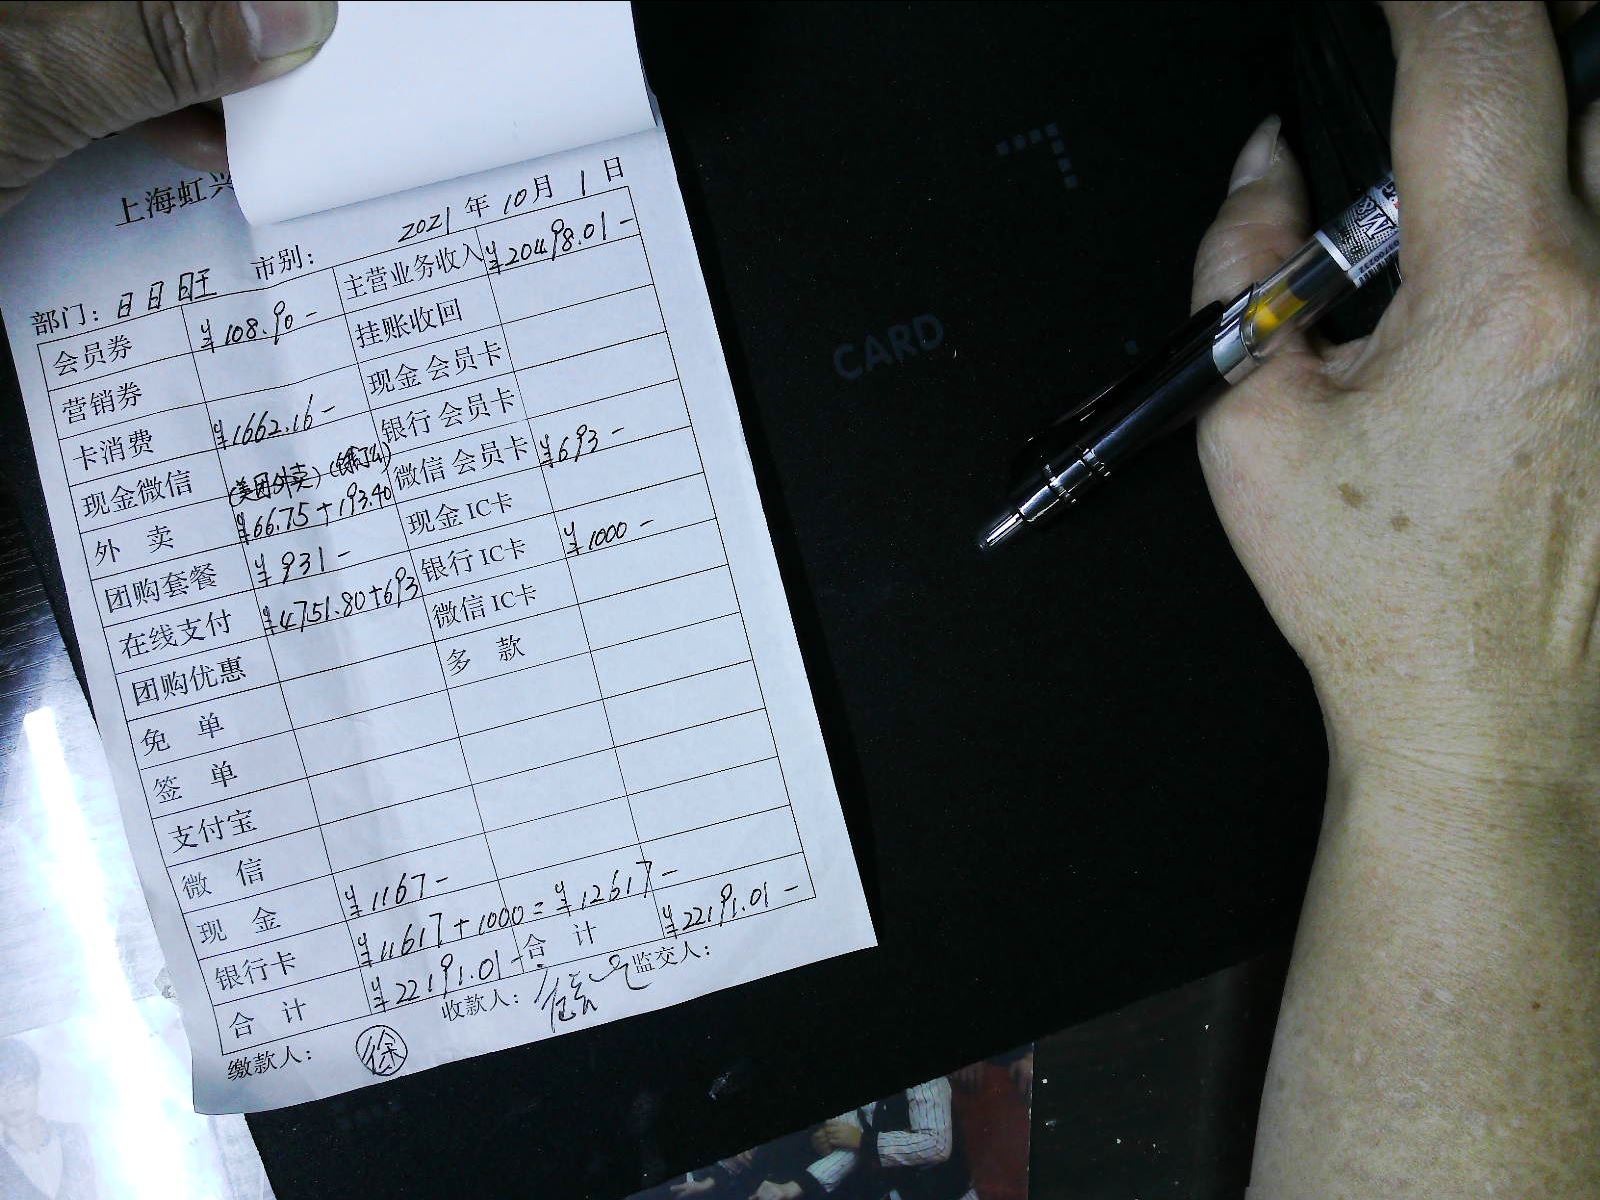 上海虹兴
2021 年 10 月 1 日
部门: 日日旺 市别:
会员券 ¥108.90 - 主营业务收入 ¥20498.01 -
营销券 挂账收回
卡消费 ¥1662.16 - 现金会员卡
现金微信 银行会员卡
(美团外卖)
外 卖 ¥66.75+193.40 微信会员卡 ¥693 -
团购套餐 ¥931 - 现金IC卡
在线支付 ¥4751.80+693 银行IC卡 ¥1000 -
团购优惠 微信IC卡
免 单 多 款
签 单
支付宝
微 信
现 金 ¥1167 -
银行卡 ¥11617+1000=¥12617 -
合 计 ¥22191.01 - 合 计 ¥22191.01 -
缴款人: 徐 收款人: 监交人:
CARD